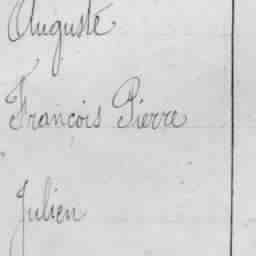 Auguste
François Pierre
Julien